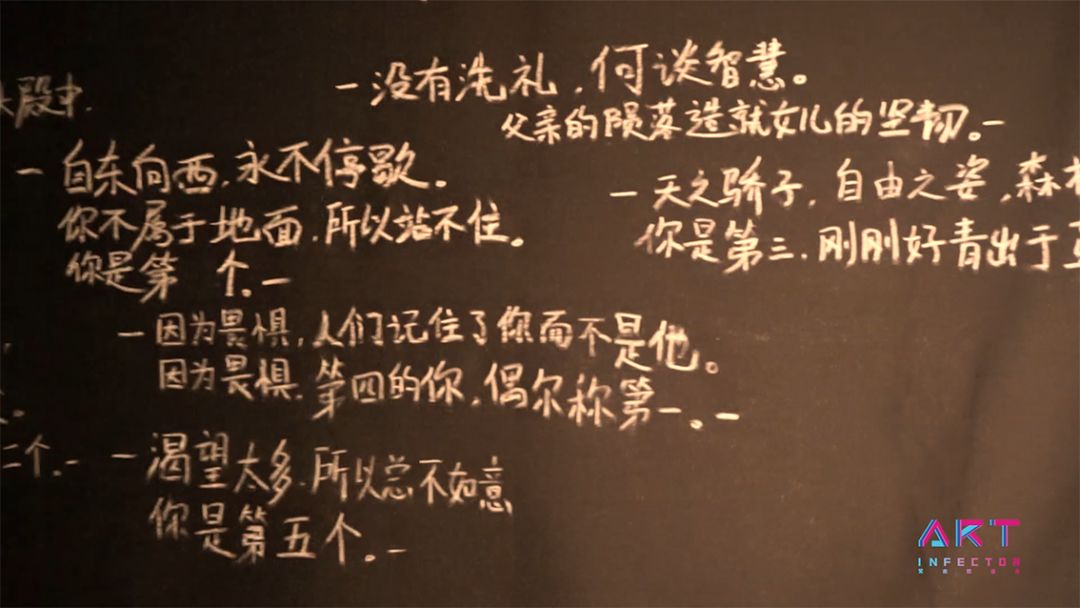 段中.
－没有洗礼，何谈智慧。
父亲的陨落造就女儿的坚韧。－
－自东向西，永不停歇。
你不属于地面，所以站不住。
你是第 个.－
－天之骄子，自由之姿，森
你是第三，刚刚好青出于
－因为畏惧，人们记住了你而不是他。
因为畏惧，第四的你，偶尔称第一。－
二个.－
－渴望太多，所以总不如意
你是第五个。－
ART
INFECTOR